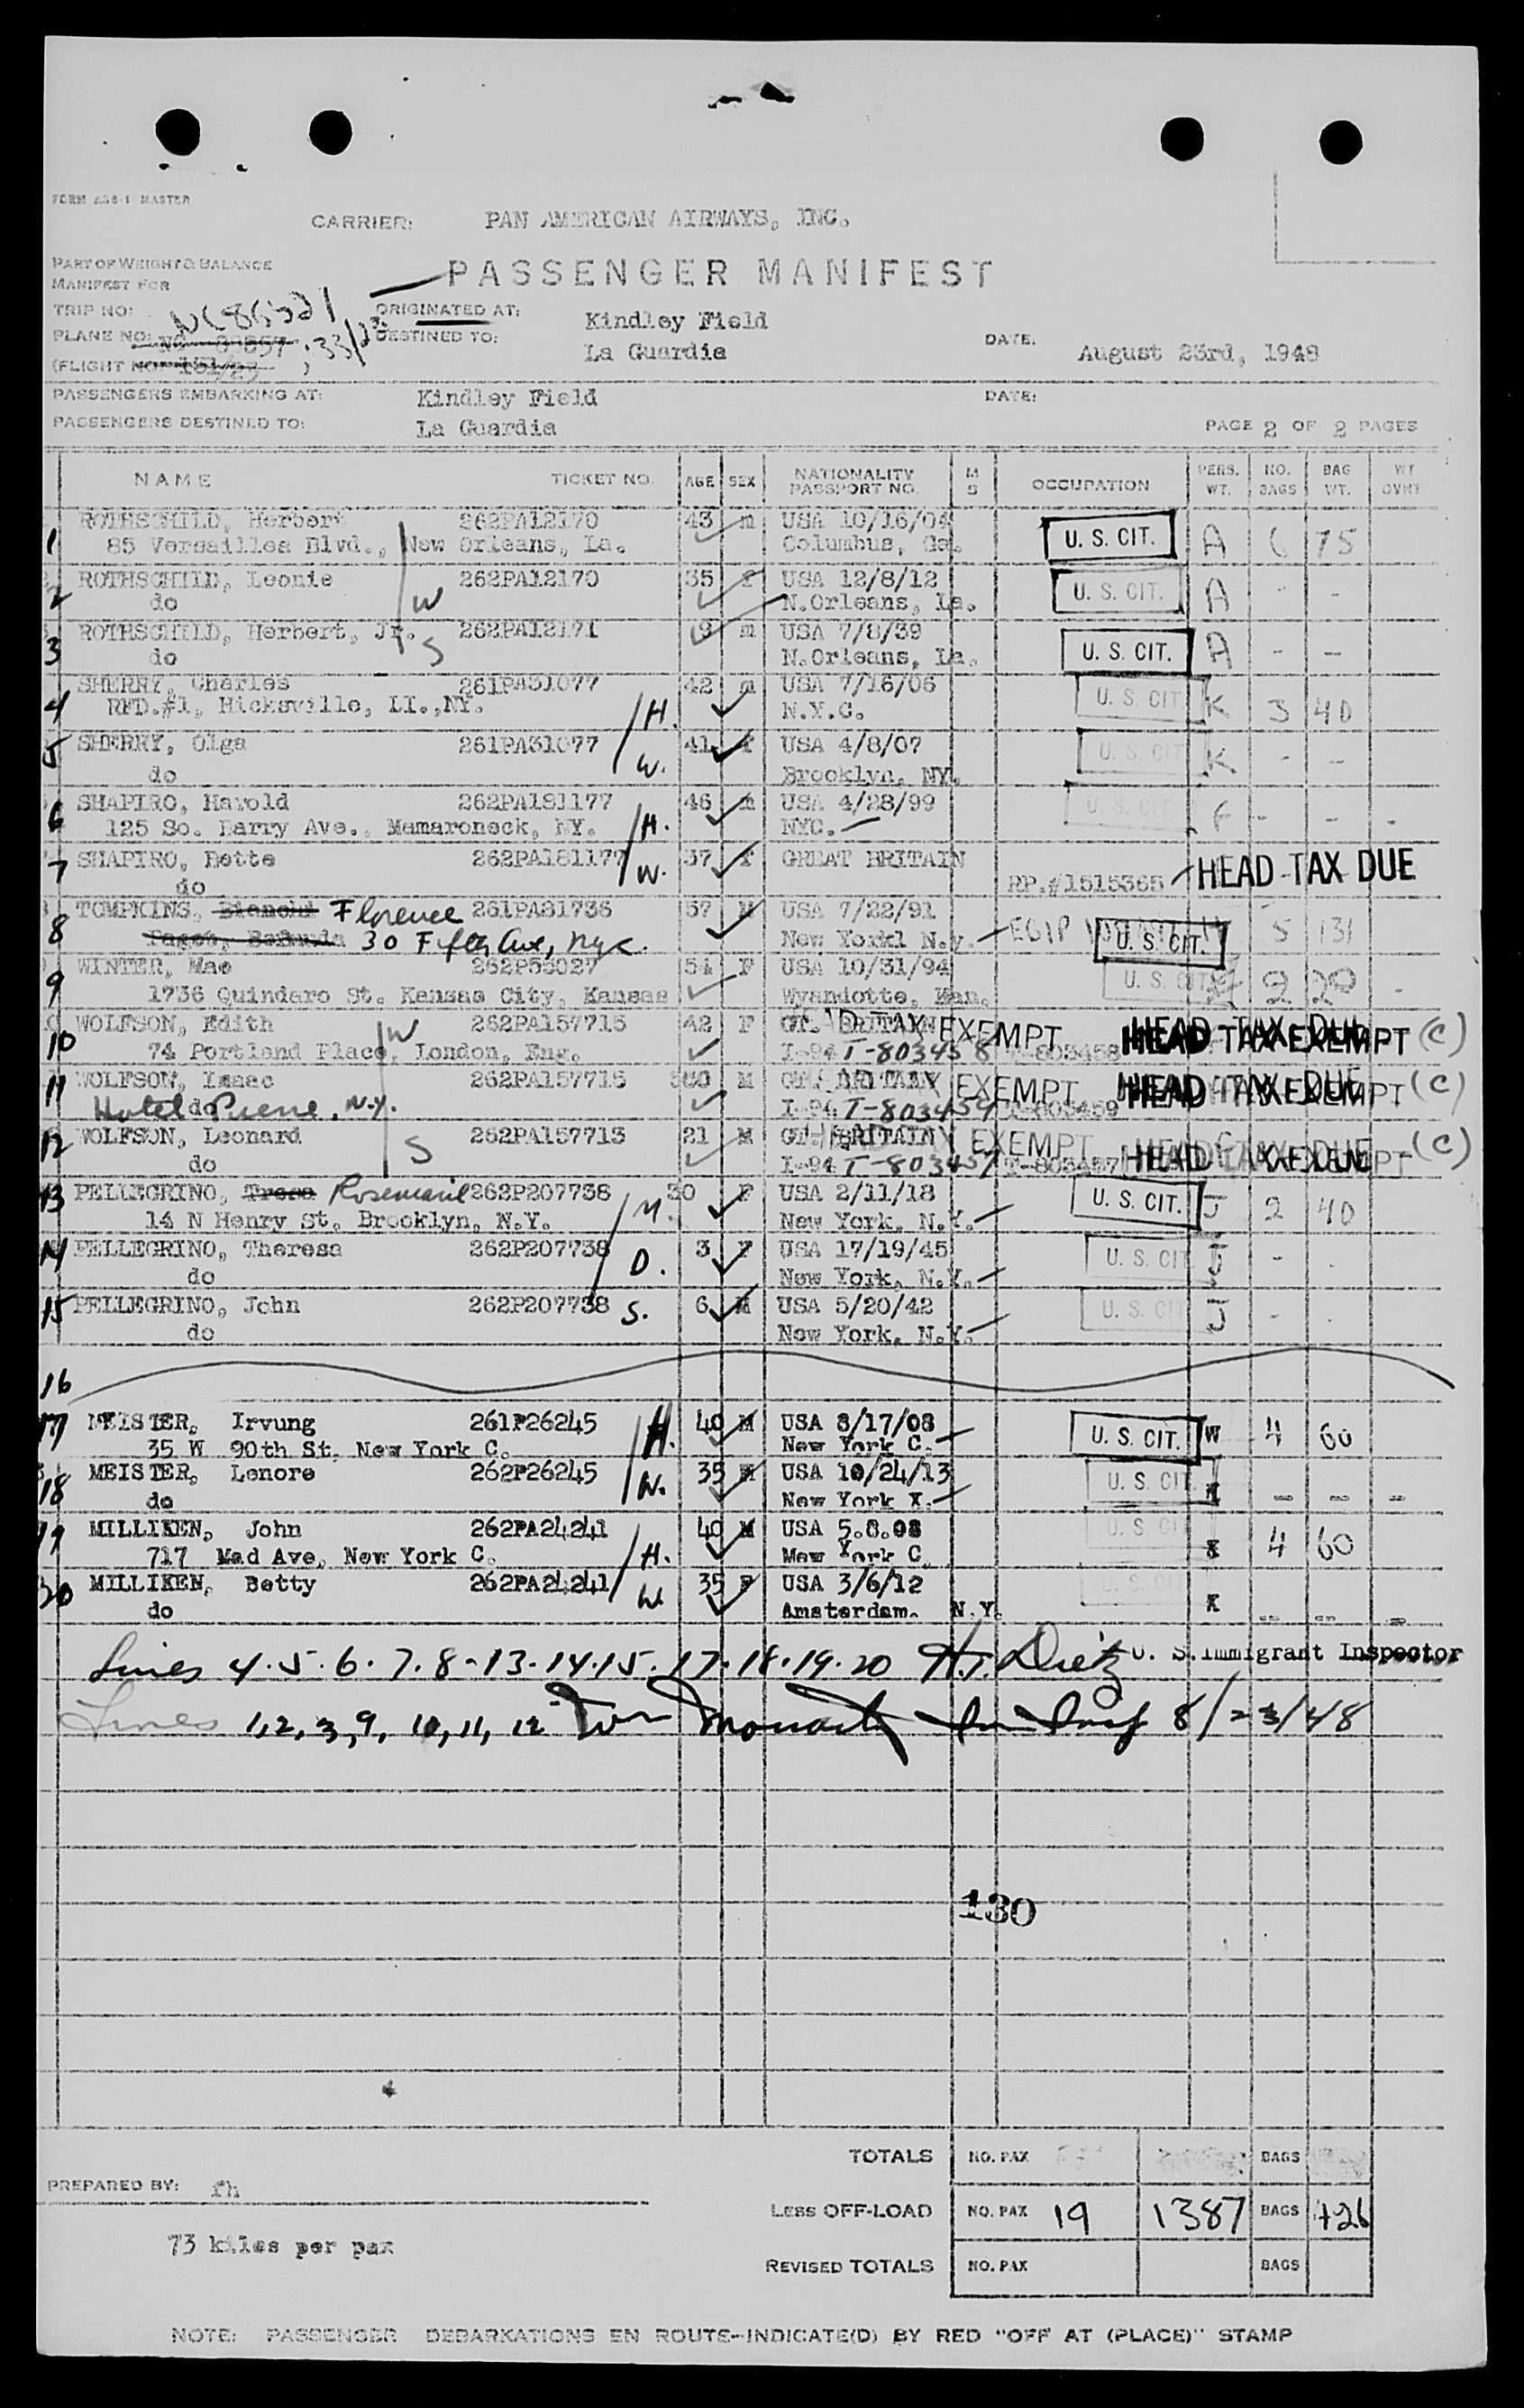 FORM
MASTER
CARRIER: PAN AMERICAN AIRWAYS, INC.
PART OF WEIGHT & BALANCE
MANIFEST FOR
PASSENGER MANIFEST
TRIP NO:
ORIGINATED AT: Kindley Field
PLANE NO:
DESTINED TO: La Guardia
DATE: August 23rd, 1948
(FLIGHT NO
PASSENGERS EMBARKING AT: Kindley Field DATE:
PASSENGERS DESTINED TO: La Guardia PAGE 2 OF 2 PAGES
NAME TICKET NO. AGE SEX NATIONALITY PASSPORT NO. M S OCCUPATION PERS. WT. NO. BAGS BAG WT. WT OVNT
1 ROTHSCHILD, Herbert 262PA12170 43 m USA 10/16/04 U. S. CIT. A 75
85 Versailles Blvd., New Orleans, La. Columbus, Ga.
2 ROTHSCHILD, Leonie 262PA12170 35 F USA 12/8/12 U. S. CIT. A - -
do W N.Orleans, La.
3 ROTHSCHILD, Herbert, Jr. 262PA12171 9 m USA 7/8/39 U. S. CIT. A - -
do S N.Orleans, La.
4 SHERRY, Charles 261PA31077 42 m USA 7/16/06 U. S. CIT K 3 40
RFD.#1, Hicksville, LI.,NY. H. N.Y.C.
5 SHERRY, Olga 261PA31077 41 f USA 4/8/07 U. S. CIT K - -
do W. Brooklyn, NY.
6 SHAPIRO, Harold 262PA181177 46 m USA 4/28/99 U. S. CIT. F - - -
125 So. Barry Ave., Mamaroneck, NY. H. NYC.
7 SHAPIRO, Bette 262PA181177 37 f GREAT BRITAIN HEAD TAX DUE
do W. RP.#1515365
8 TOMPKINS, Florence 261PA81736 57 M USA 7/22/91 U. S. CIT. 5 131
30 Fifth Ave, nyc. New Yorkl N.y.
9 WINTER, Mae 54 F USA 10/31/94 U. S. CIT 2 20 -
1736 Quindaro St. Kansas City, Kansas Wyandotte, Kan.
10 WOLFSON, Edith W 262PA157715 42 F GT. BRITAIN TAX EXEMPT HEAD TAX DUE HEAD TAX EXEMPT (C)
74 Portland Place, London, Eng. I-94 T-803458
11 WOLFSON, Isaac 262PA157715 50 M GT. BRITAIN EXEMPT HEAD TAX DUE HEAD TAX EXEMPT (C)
Hotel Pierre, N.Y. do I-94 T-803459
12 WOLFSON, Leonard 262PA157713 21 M GT. BRITAIN EXEMPT HEAD TAX DUE HEAD TAX EXEMPT (C)
do S I-94 T-803457
13 PELLEGRINO, Tresa Rosemarie 262P207738 30 F USA 2/11/18 U. S. CIT. J 2 40
14 N Henry St. Brooklyn, N.Y. M. New York, N.Y.
14 PELLEGRINO, Theresa 262P207738 3 F USA 17/19/45 U. S. CIT J - .
do D. New York, N.Y.
15 PELLEGRINO, John 262P207738 S. 6 M USA 5/20/42 U. S. CIT J - .
do New York, N.Y.
16
17 MEISTER, Irvung 261P26245 H. 40 M USA 8/17/08 U. S. CIT. W 4 60
35 W 90th St, New York C. New York C.
18 MEISTER, Lenore 262P26245 W. 35 USA 10/24/13 U. S. CIT. - - -
do New York X.
19 MILLIKEN, John 262PA24241 40 M USA 5.8.08 U. S. CIT X 4 60
717 Mad Ave, New York C. H. Mew York C.
20 MILLIKEN, Betty 262PA24241 W. 35 F USA 3/6/12 U. S. CIT X - - -
do Amsterdam. N.Y.
Lines 4.5.6.7.8-13-14.15.17.18.19.20 H.J. Dietz U. S. Immigrant Inspector
Lines 1,2,3,9, 10,11, 12 8/23/48
130
TOTALS NO. PAX BAGS
PREPARED BY: fh
Less OFF-LOAD NO. PAX 19 1387 BAGS 426
73 kilos per pax
REVISED TOTALS NO. PAX BAGS
NOTE: PASSENGER DEBARKATIONS EN ROUTE--INDICATE(D) BY RED "OFF AT (PLACE)" STAMP